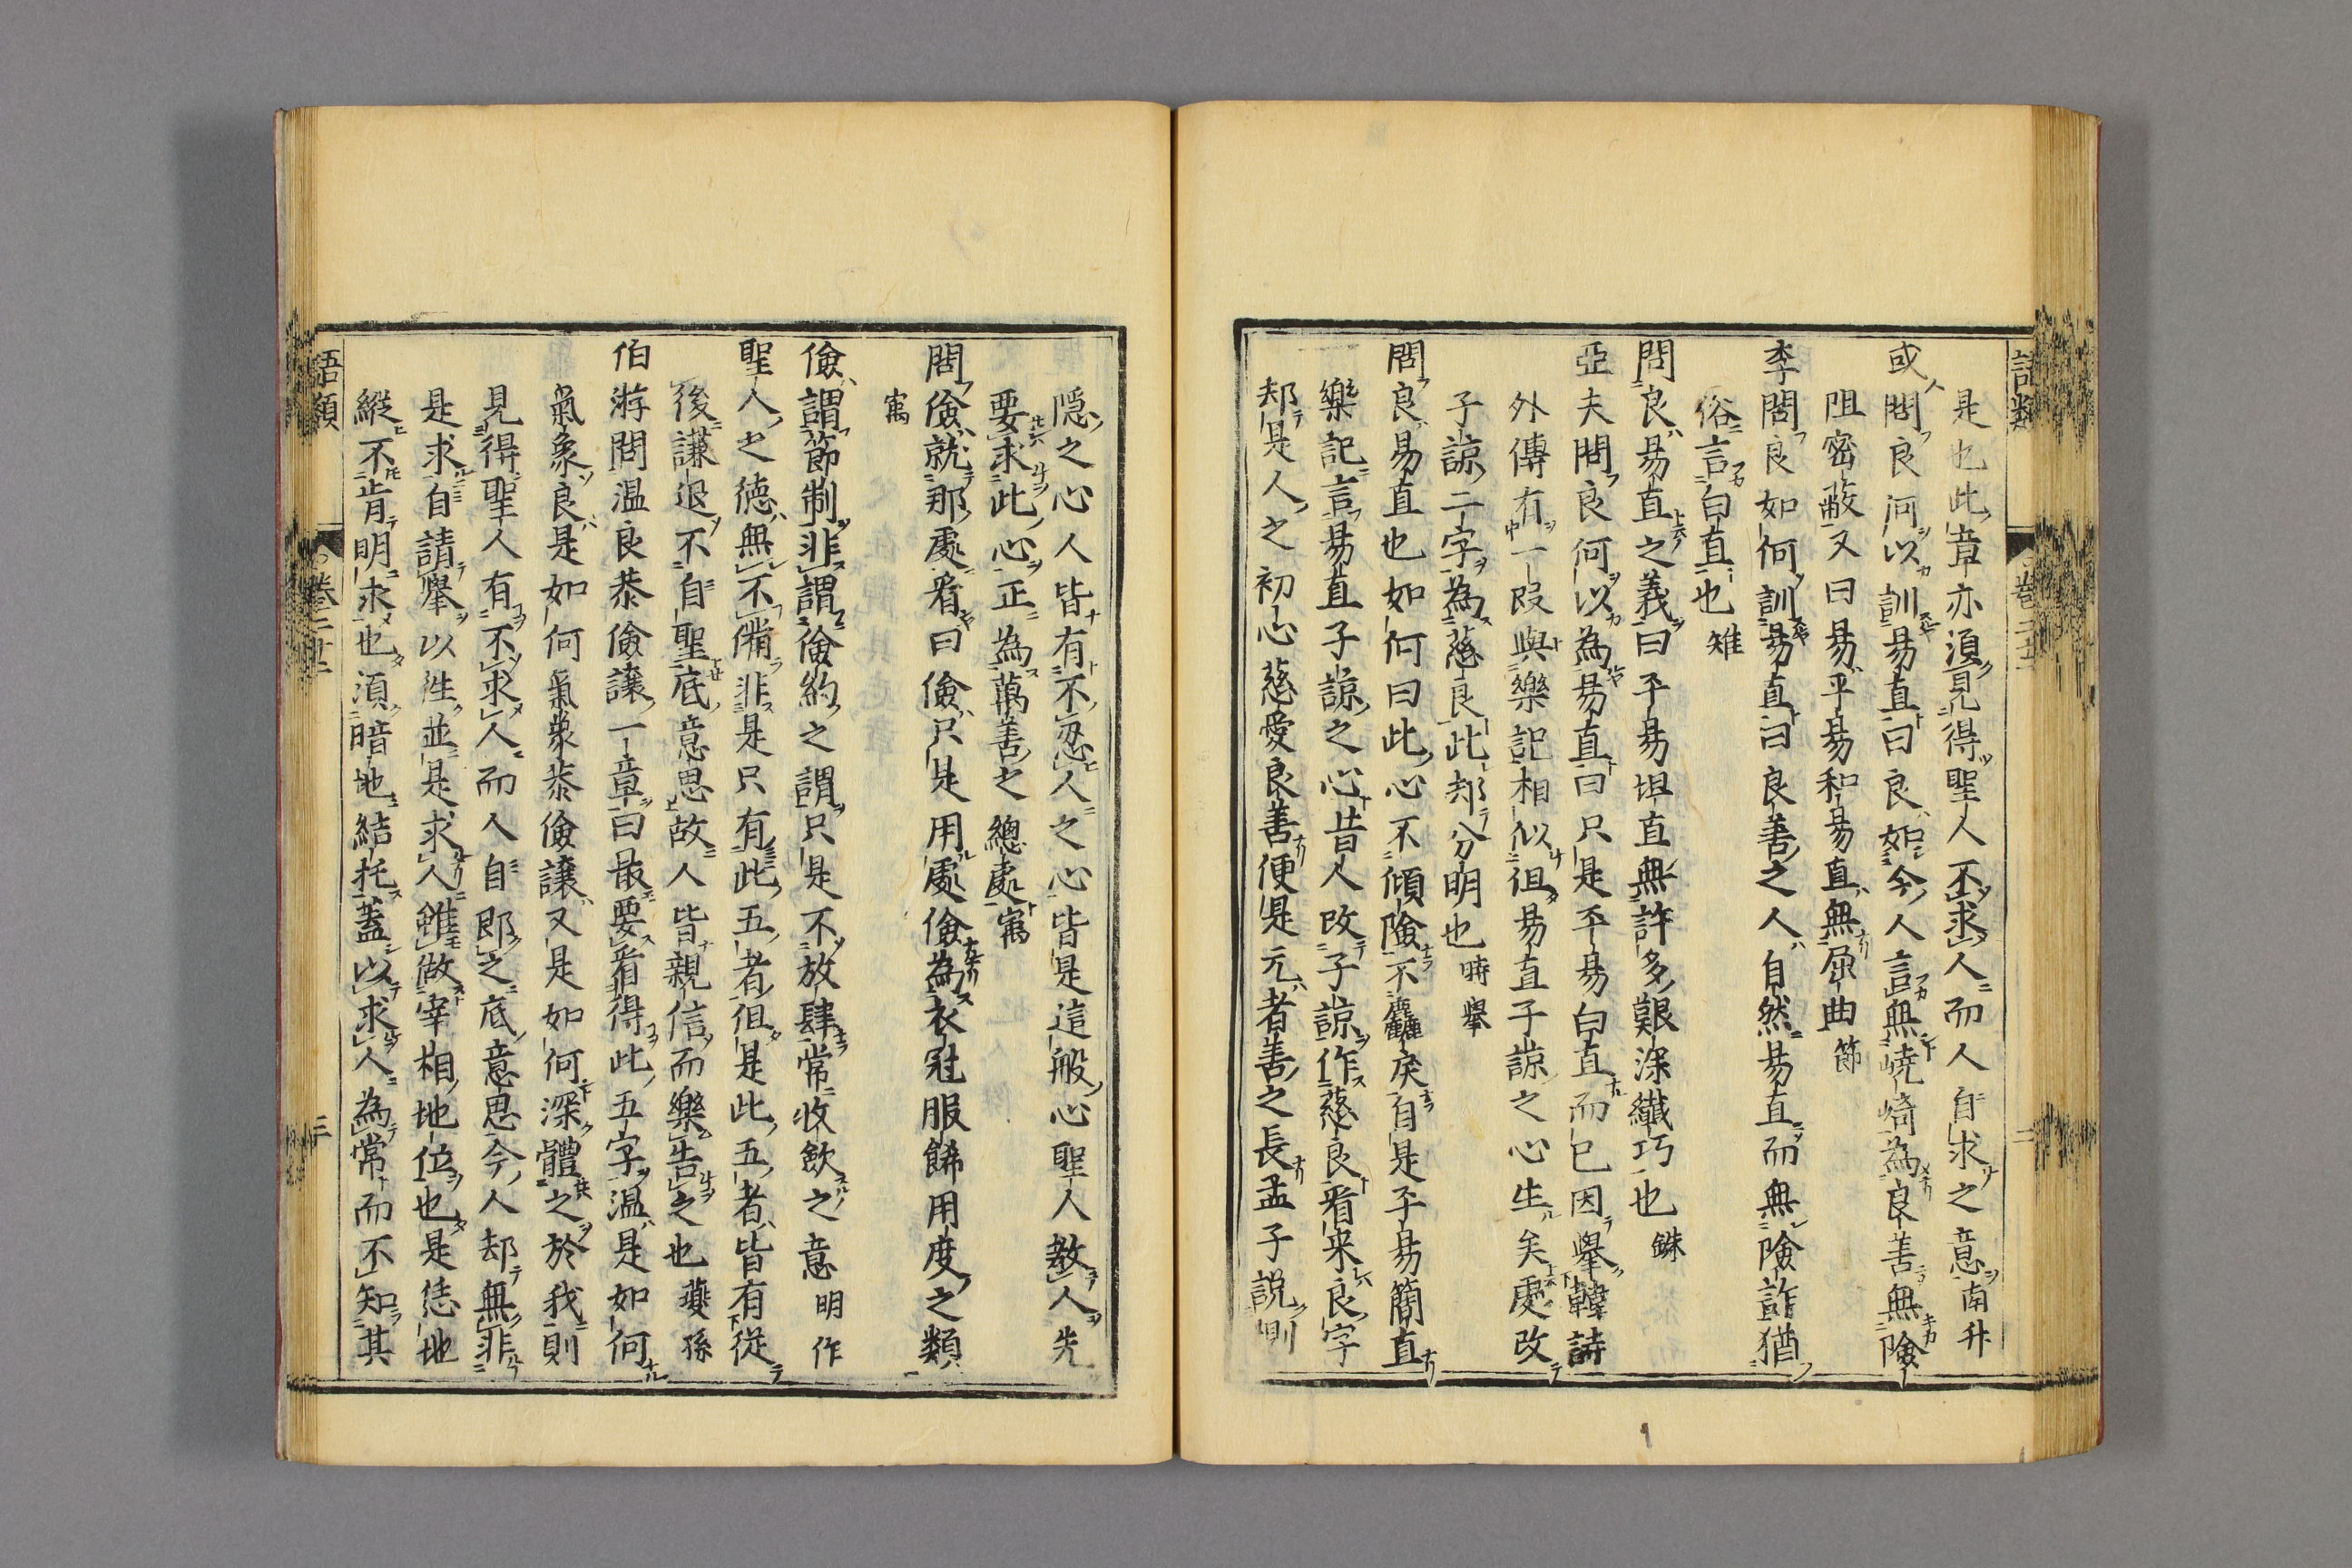 語類
卷二十二
二
是也此章亦須見得聖人不求人而人自求之意南升
或問良何以訓易直曰良如今人言無嶢崎為良善無險
阻密蔽又曰易平易和易直無屈曲節
李問良如何訓易直曰良善之人自然易直而無險詐猶
俗言白直也雉
問良易直之義曰平易坦直無許多艱深纖巧也銖
亞夫問良何以為易直曰只是平易白直而已因舉韓詩
外傳有一段與樂記相似但易直子諒之心生矣處改
子諒二字為慈良此却分明也時舉
問良易直也如何曰此心不傾險不麤戾自是平易簡直
樂記言易直子諒之心昔人改子諒作慈良看来良字
却是人之初心慈愛良善便是元者善之長孟子説惻
隠之心人皆有不忍人之心皆是這般心聖人教人先
要求此心正為萬善之總處㝢
問儉就那處看曰儉只是用處儉為衣冠服餙用度之類
㝢
儉謂節制非謂儉約之謂只是不放肆常收斂之意明作
聖人之德無不備非是只有此五者但是此五者皆有從
後謙退不自聖底意思故人皆親信而樂告之也夔孫
伯游問温良恭儉讓一章曰最要看得此五字温是如何
氣象良是如何氣象恭儉讓又是如何深體之於我則
見得聖人有不求人而人自即之底意思今人却無非
是求自請舉以往並是求人雖做宰相地位也是恁地
縦不肯明求也須暗地結托蓋以求人為常而不知其
語類
卷二十二
三